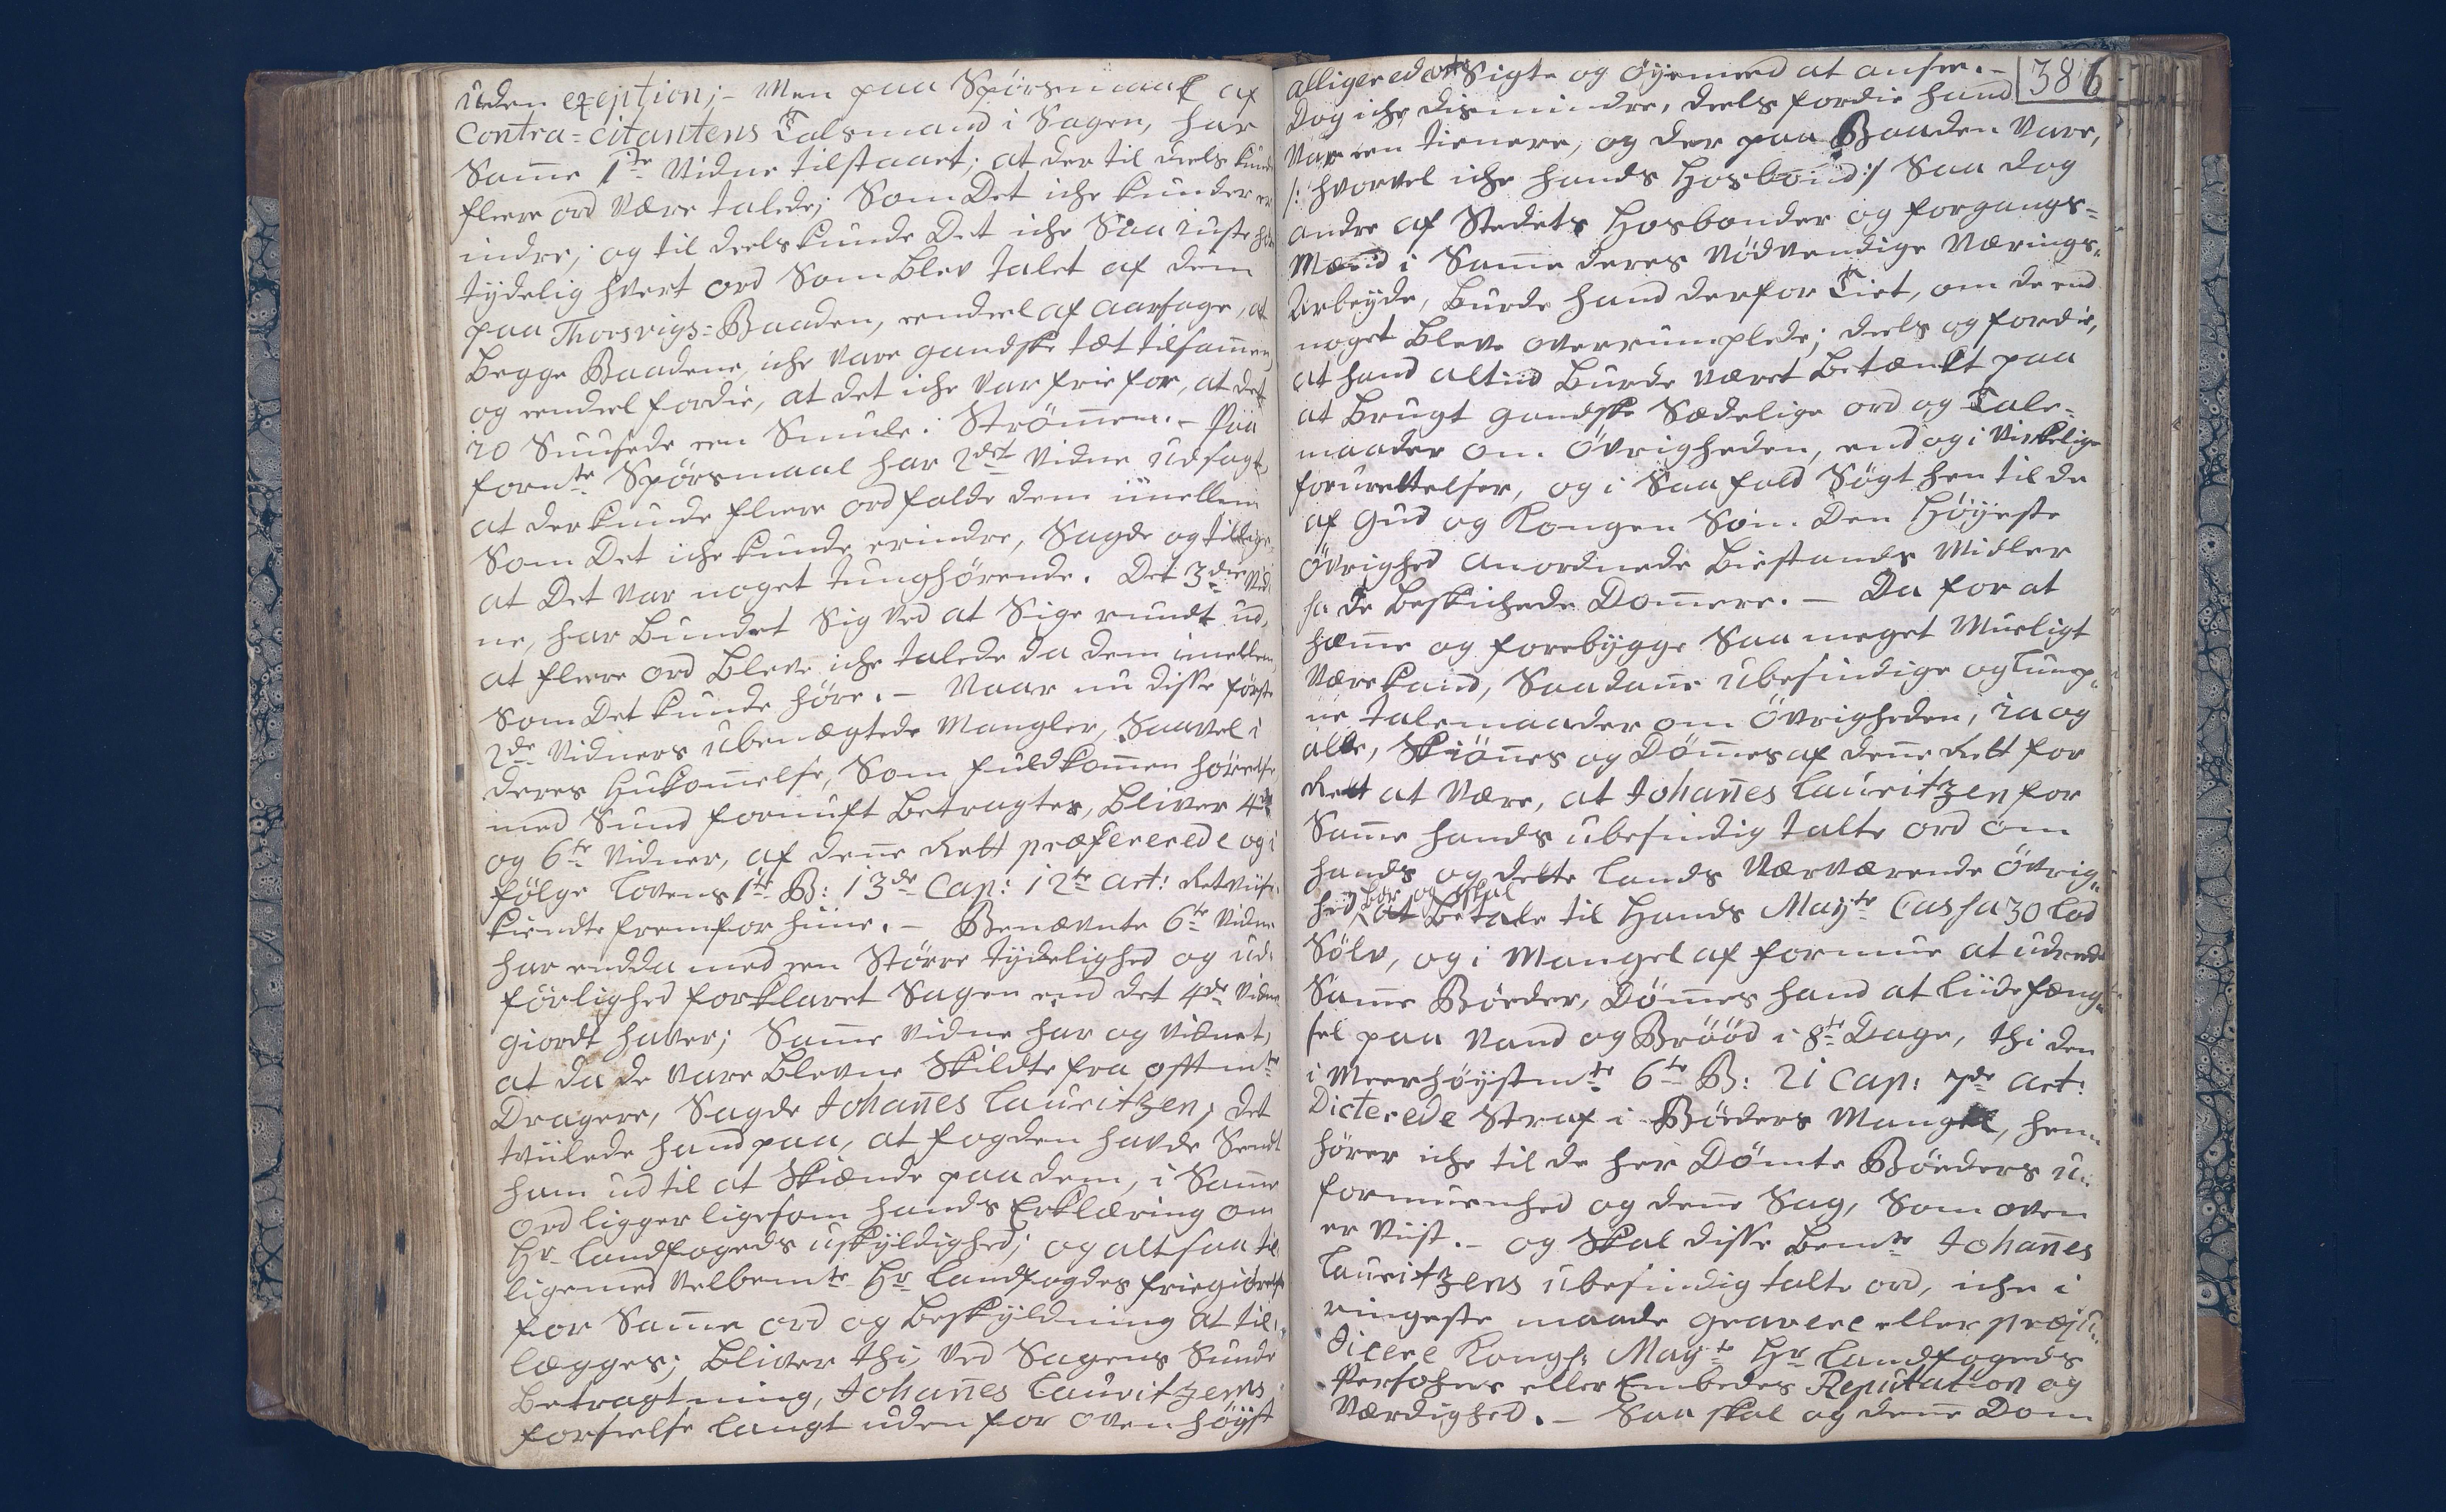 uden exeption; – Men paa Spörsmaal af
Contra-citantens Talsmand i Sagen, har
Sam̄e 1te Vidne tilstaaet; at der til deels kunde
fleere ord være talede; Som Det iche kunde er
indre; og til deels kunde Det iche Saa just hör
tydelig hvert ord Som blev talet af dem
paa Thorsvigs-Baaden, eendeel af aarsage, at
begge Baadene, iche vare gandske tæt tilsam̄en,
og eendeel fordie, at det iche var frie for, at det
jo Suusede een Smule i Ström̄en. – Paa
fornte Spörsmaal har 2det Vidne udsagt,
at der kunde fleere ord falde dem imellem
Som Det iche kunde erindre, Sagde og tillige
at Det var noget tunghörende. Det 3die Vid
ne, har bundet Sig ved at Sige rundt ud,
at fleere ord bleve iche talede da dem imellem,
Som Det kunde höre. – Naar nu disse förste
2de Vidners ubenægtede Mangler, Saavel i
deres Hukom̄else, Som fuldkom̄en hörelse,
med Sund fornuft betragtes, bliver 4de
og 6te Vidner, af den̄e Rett præfererede og i
fölge Lovens 1te B: 13de Cap: 12te art: Retviis
kiendte fremfor hiine. – Benævnte 6te Vidne
har endda med een Större tydelighed og ud-
förlighed forklaret Sagen end det 4de Vidne
giordt haver; Sam̄e Vidne har og vidnet,
at da de vare blevne Skildte fra offtmte
Dragere, Sagde Johan̄es Lauritzen, det
tviilede hand paa, at fogden havde Sendt
ham ud til at Skiænde paa dem, i Sam̄e
ord ligger ligesom hands Erklæring om
Hr Landfogeds uskyldighed; og altsaa til
ligemed Velbemte Hr Landfogdes friegiörelse
for Sam̄e ord og beskyldning at til-
lægges; bliver thi, ved Sagens Sunde
betragtning, Johan̄es Lauritzens
forseelse langt uden for ovenhöyst
alligerede Sigte og öyemeed at ansee. – 386
Dog iche dismindre, deels fordie hand
var een tienere, og der paa Baaden vare,
/: hvorvel iche hands Hosbond :/ Saa dog
andre af Stedets Hosbonder og forgangs-
Mænd i Sam̄e deres nödvendige Nærings-
Arbeyde, burde hand derfor Tiet, om de end
noget bleve overrumplede; deels og fordie,
at hand altiid burde været betænkt paa
at brugt gandske Sædelige ord og Tale-
maader om Övrigheden, endog i virkelige
forurettelser, og i Saa fald Sögt hen til de
af Gud og Kongen Som den Höyeste
Övrighed anordnede biestands Midler
ia de beskichede Dom̄ere. – Da for at
hæm̄e og forebygge Saa meget Mueligt
være kand, Saadan̄e ubesindige og Lump-
ne talemaader om Övrigheden, ia og
alle, Skiön̄es og Döm̄es af den̄e Rett for
Rett at være, at Johan̄es Lauritzen for
Sam̄e hands ubesindig talte ord om
hands og dette Lands nærværende Övrig-
hed, bör og skal at betale til Hands Mayts Cassa 30 Lod
Sölv, og i Mangel af formue at udrede
Sam̄e Böeder, döm̄es hand at liide fæng-
sel paa Vand og Bröd i 8te Dage, thi den
i Meerhöystmte 6te B: 21 Cap: 7de Art:
Dicterede Straf i Böeders Mangel, hen-
hörer iche til de her Dömte Böeders u-
formuenhed og den̄e Sag, Som oven
er viist. – og Skal disse bemte Johan̄es
Lauritzens ubesindig talte ord, iche i
ringeste maade gravere eller præju-
dicere Kongl: Mayts Hr Landfogeds
Persohns eller Embedes Reputation og
Værdighed. – Saa skal og den̄e Dom